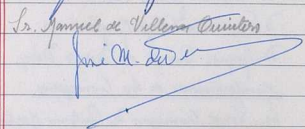 Sr. Manuel de Villena Quintero
José M. de